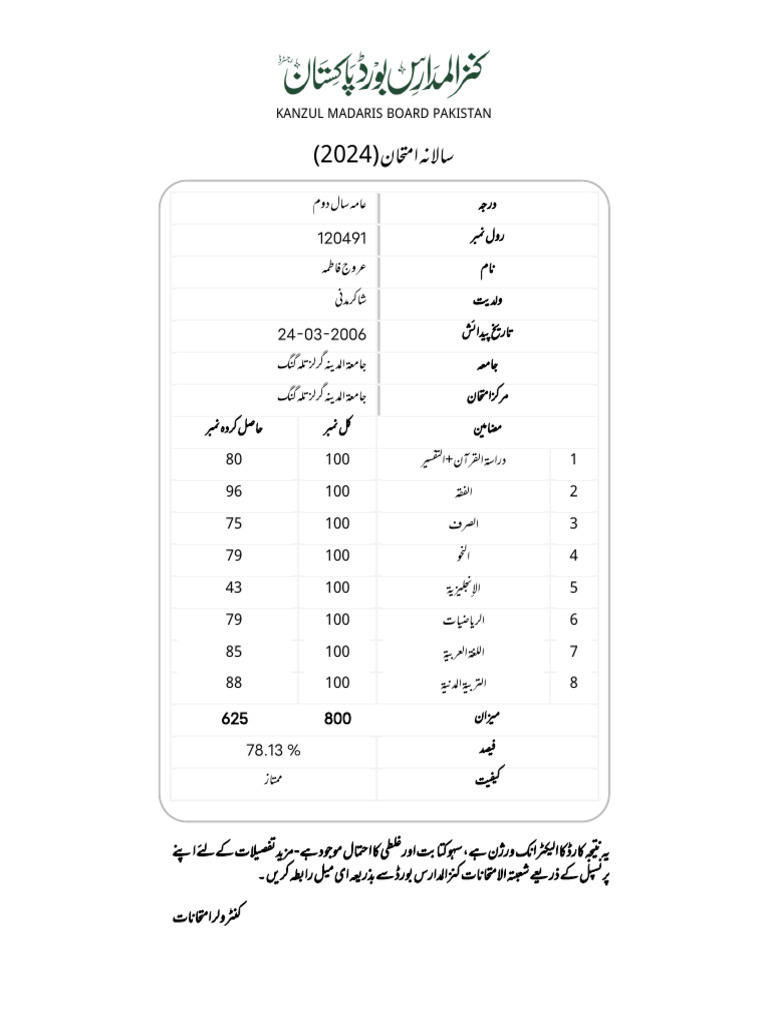 کنز المدارس بورڈ پاکستان رجسٹرڈ
KANZUL MADARIS BOARD PAKISTAN
سالانہ امتحان (2024)
درجہ عامہ سال دوم
رول نمبر 120491
نام عروج فاطمہ
ولدیت شاکر مدنی
تاریخ پیدائش 24-03-2006
جامعہ جامعۃ المدینہ گرلز تلہ گنگ
مرکز امتحان جامعۃ المدینہ گرلز تلہ گنگ
مضامین کل نمبر حاصل کردہ نمبر
1 دراسۃ القرآن+التفسیر 100 80
2 الفقہ 100 96
3 الصرف 100 75
4 النحو 100 79
5 الإنجلیزیۃ 100 43
6 الریاضیات 100 79
7 اللغۃ العربیۃ 100 85
8 التربیۃ المدنیۃ 100 88
میزان 800 625
فیصد 78.13 %
کیفیت ممتاز
یہ نتیجہ کارڈ کا الیکٹرانک ورژن ہے، سہو کتابت اور غلطی کا احتمال موجود ہے-مزید تفصیلات کے لئے اپنے
پرنسپل کے ذریعے شعبۃ الامتحانات کنز المدارس بورڈ سے بذریعہ ای میل رابطہ کریں۔
کنٹرولر امتحانات